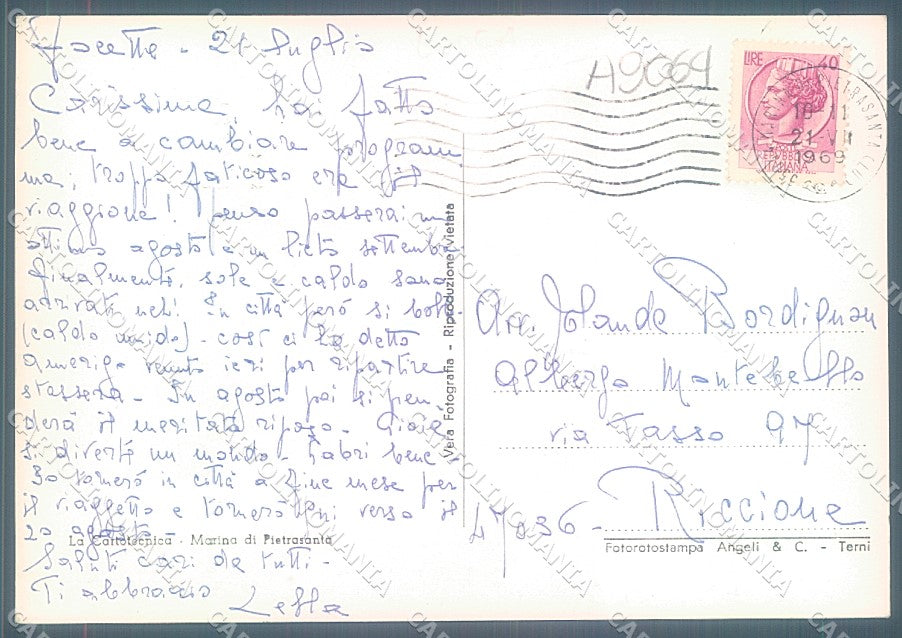 Focette - 21 luglio
Carissima, hai fatto
bene a cambiare program
ma, troppo faticoso era il
viaggione! Penso passerai un
ottimo agosto e un lieto settembre.
Finalmente, sole e caldo sono
arrivati neh! In città però si bolle
(caldo umido) - così ci ha detto
Amerigo venuto ieri per ripartire
stassera - In agosto poi si pren
derà il meritato riposo - Gioia
si diverte un mondo - Gabri bene -
Io tornerò in città a fine mese per
il viaggetto e tornerò verso il
20 agosto -
Saluti cari da tutti -
Ti abbraccio
La Cartotecnica - Marina di Pietrasanta
Vera Fotografia - Riproduzione Vietata
A9064
LIRE 40
REPUBBLICA
ITALIANA
PIETRASANTA
18-19
21 VII
1969
Jolanda Bordignon
Albergo Montebello
via Tasso 97
47036 - Riccione
Fotorotostampa Angeli & C. - Terni
CARTOLINOMANIA